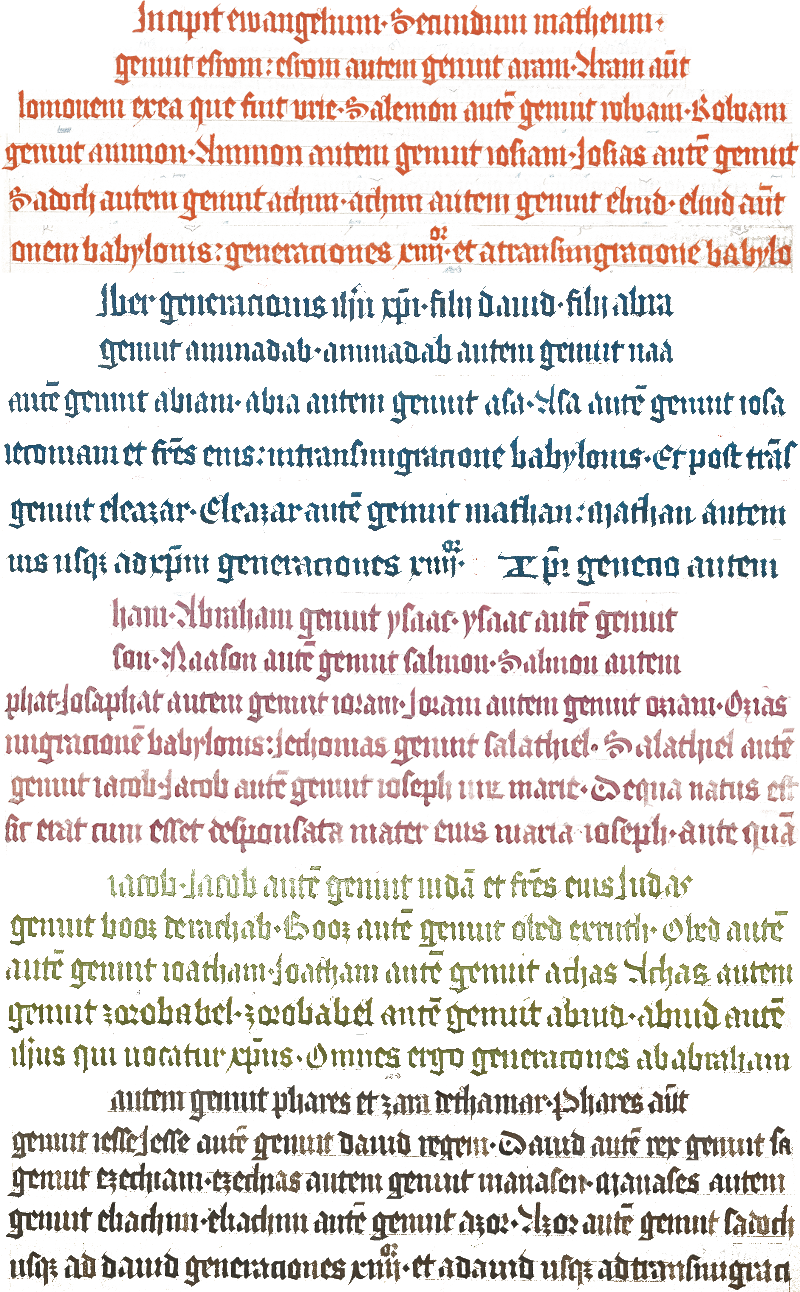 Incipit ewangelium · Secundum matheum ·
genuit esrom : esrom autem genuit aram · Aram aūt
lomonem exea que fuit vrie · Salemon autē genuit roboam · Roboam
genuit ammon · Ammon autem genuit iosiam · Josias autē genuit
Sadoch autem genuit achim · achim autem genuit eliud · eliud aūt
onem babylonis : generaciones xiiii or · et atransmigracione babylo
iber generacionis ihu xp̄i · filii dauid · filii abra
genuit aminadab · aminadab autem genuit naa
autē genuit abiam · abia autem genuit asa · Asa autē genuit iosa
ieconiam et fr̄es eius : intransmigracione babylonis · Et post trās
genuit eleazar · Eleazar autē genuit mathan : mathan autem
nis usqz adxp̄m generaciones xiiii or · Xp̄i genecio autem
ham · Abraham genuit ysaac · ysaac autē genuit
son · Naason autē genuit salmon · Salmon autem
phat · Josaphat autem genuit ioram · Joram autem genuit oziam · Ozias
migracionē babylonis : Jechonias genuit salathiel · Salathiel autē
genuit iacob · Jacob autē genuit ioseph marie · Dequa natus est
sic erat cum esset desponsata mater eius maria ioseph · ante quā
iacob · Jacob autē genuit iudā et fr̄es eius Judas
genuit booz derachab · Booz autē genuit obed exruth · Obed autē
autē genuit ioatham · Joatham autē genuit achas Achas autem
genuit zorobabel · zorobabel autē genuit abiud · abiud autē
ihus qui uocatur xp̄us · Omnes ergo generacones ababraham
autem genuit phares et zara dethamar · Phares aūt
genuit iesse Jesse autē genuit dauid regem · Dauid autē rex genuit sa
genuit ezechiam · ezechias autem genuit manasen · manases autem
genuit eliachim · eliachim autē genuit azor · Azor autē genuit sadoch
usqz ad dauid generaciones xiiii or · et adauid usqz adtransmigraci